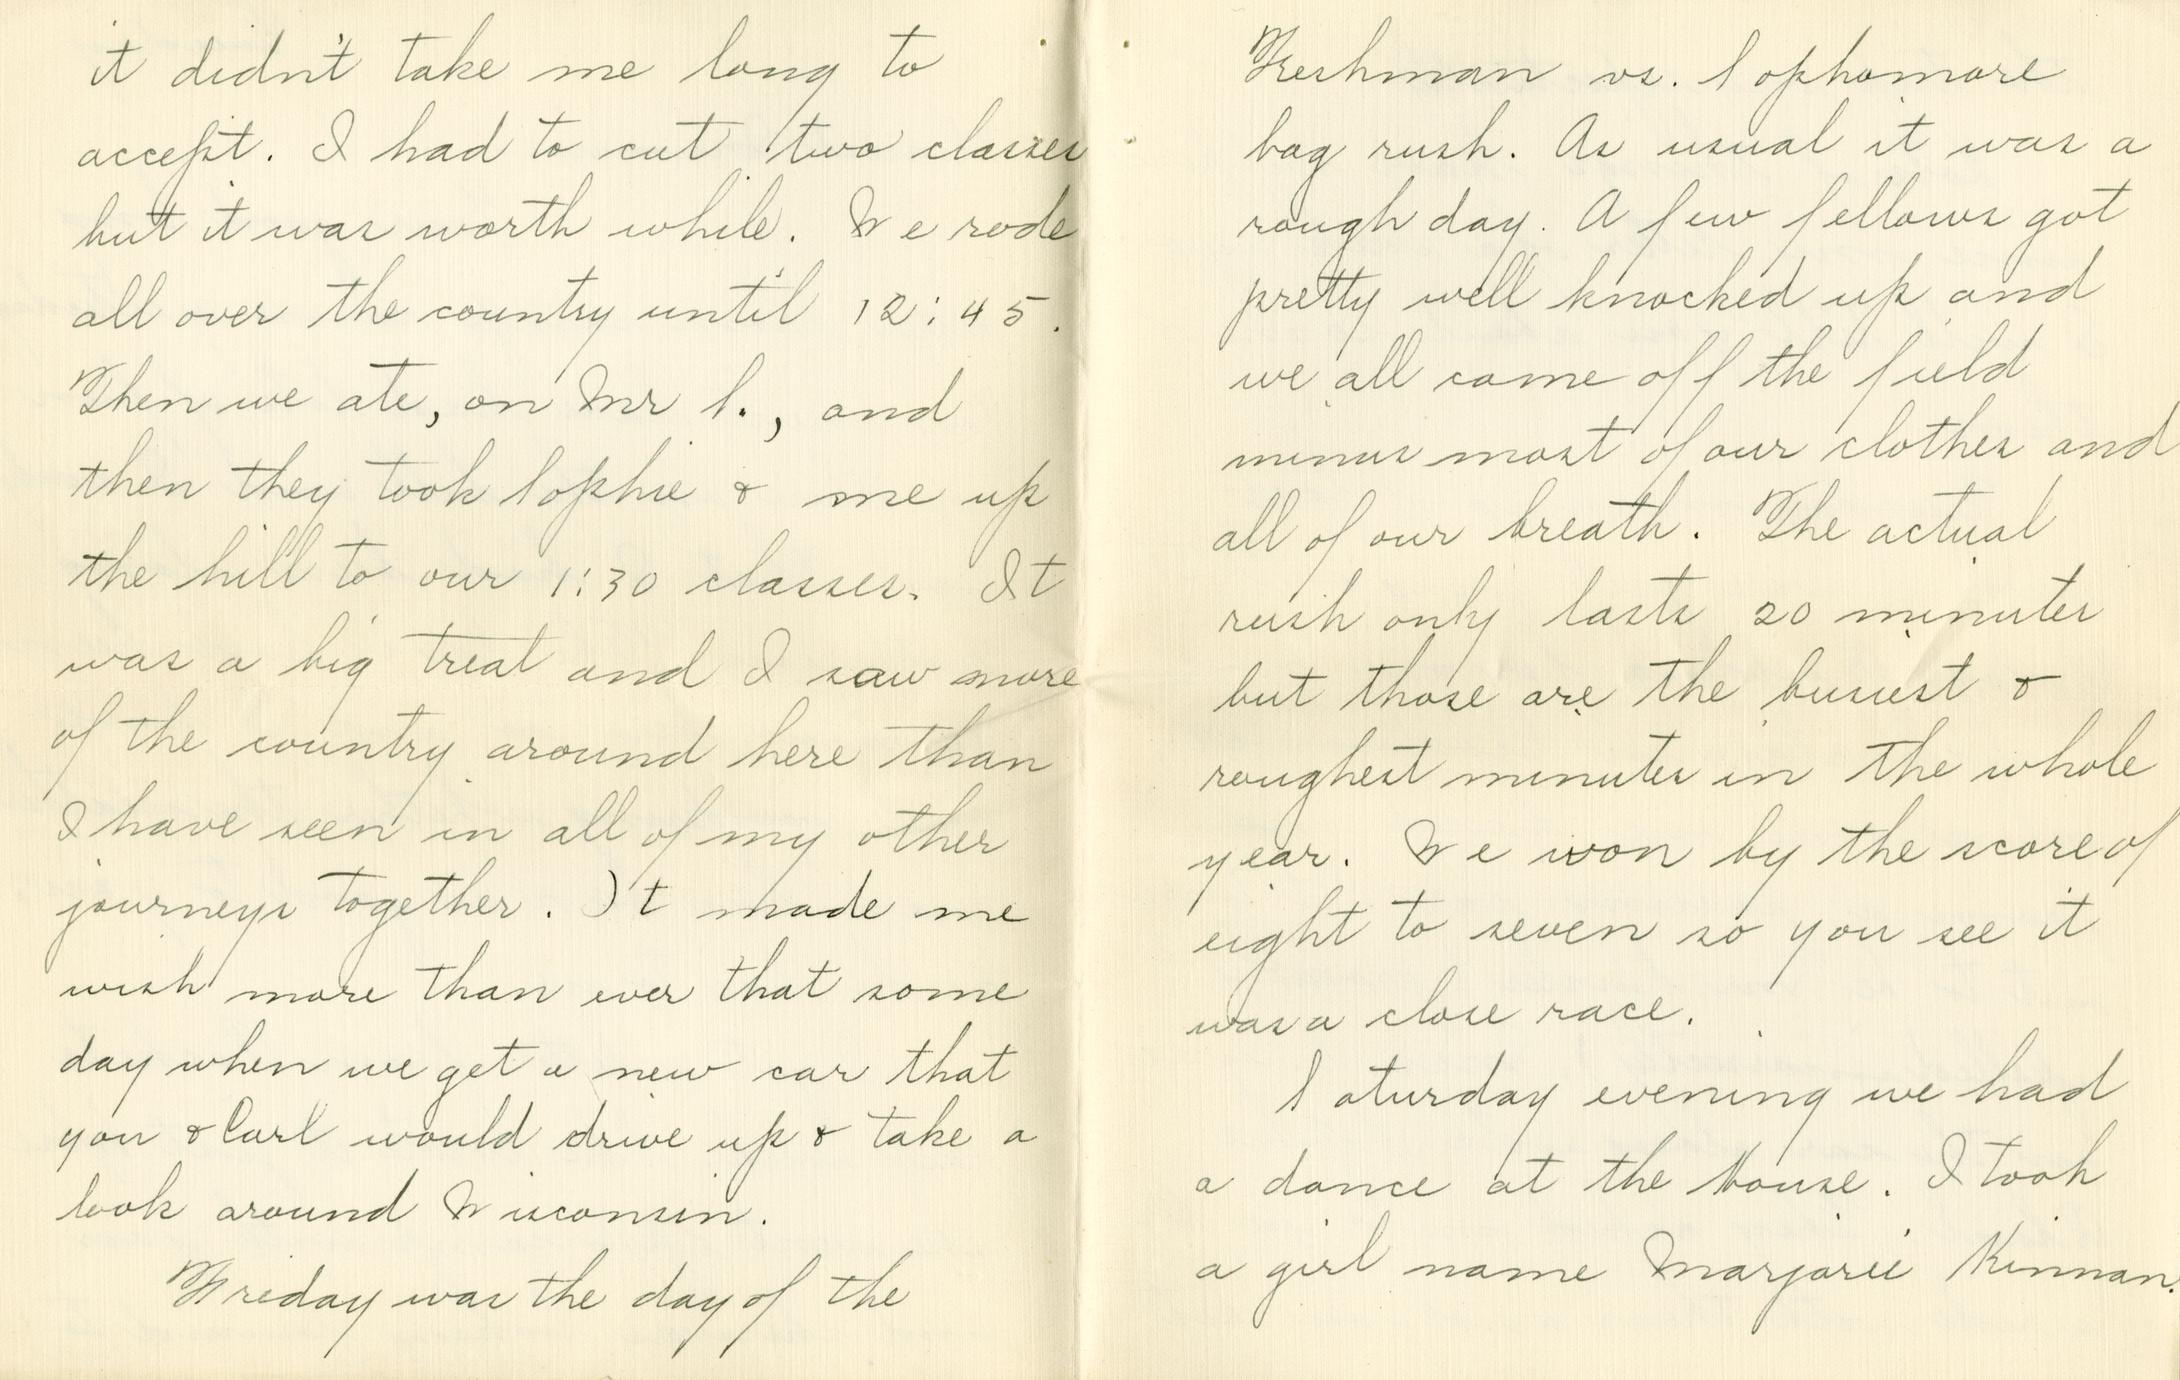 it didn't take me long to
accept. I had to cut two classes
but it was worth while. We rode
all over the country until 12:45.
Then we ate, on Mr S., and
then they took Sophie & me up
the hill to our 1:30 classes. It
was a big treat and I saw more
of the country around here than
I have seen in all of my other
journeys together. It made me
wish more than ever that some
day when we get a new car that
you & Carl would drive up & take a
look around Wisconsin.
Friday was the day of the
Freshman vs. Sophomore
bag rush. As usual it was a
rough day. A few fellows got
pretty well knocked up and
we all came off the field
minus most of our clothes and
all of our breath. The actual
rush only lasts 20 minutes
but those are the busiest &
roughest minutes in the whole
year. We won by the score of
eight to seven so you see it
was a close race.
Saturday evening we had
a dance at the House. I took
a girl name Marjorie Kinnan.